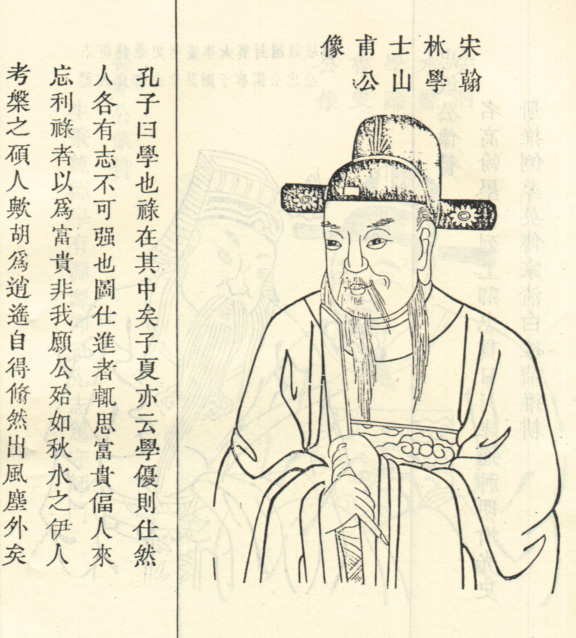 宋翰
林學
士山
甫公
像
孔子曰學也祿在其中矣子夏亦云學優則仕然
人各有志不可强也圖仕進者輒思富貴偪人來
忘利祿者以爲富貴非我願公殆如秋水之伊人
考槃之碩人歟胡爲逍遙自得翛然出風塵外矣